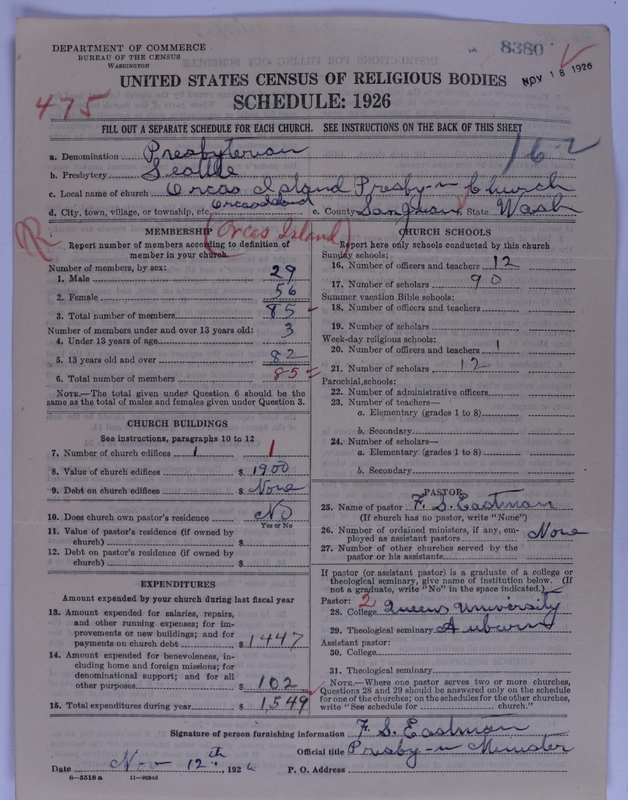 DEPARTMENT OF COMMERCE
BUREAU OF THE CENSUS
WASHINGTON
8380
NOV 18 1926
UNITED STATES CENSUS OF RELIGIOUS BODIES
475
SCHEDULE: 1926
FILL OUT A SEPARATE SCHEDULE FOR EACH CHURCH. SEE INSTRUCTIONS ON THE BACK OF THIS SHEET
162
a. Denomination Presbyterian
b. Presbytery Seattle
c. Local name of church Orcas Island Presby-n Church
d. City, town, village, or township, etc. Orcas Island e. County San Juan f. State Wash
R (Orcas Island)
MEMBERSHIP
Report number of members according to definition of
member in your church
Number of members, by sex:
1. Male 29
2. Female 56
3. Total number of members 85
Number of members under and over 13 years old:
4. Under 13 years of age 3
5. 13 years old and over 82
6. Total number of members 85
NOTE.—The total given under Question 6 should be the
same as the total of males and females given under Question 3.
CHURCH BUILDINGS
See instructions, paragraphs 10 to 12
7. Number of church edifices 1 1
8. Value of church edifices $ 1900
9. Debt on church edifices $ None
10. Does church own pastor's residence No
Yes or No
11. Value of pastor's residence (if owned by
church) $
12. Debt on pastor's residence (if owned by
church) $
EXPENDITURES
Amount expended by your church during last fiscal year
13. Amount expended for salaries, repairs,
and other running expenses; for im-
provements or new buildings; and for
payments on church debt $ 1447
14. Amount expended for benevolences, in-
cluding home and foreign missions; for
denominational support; and for all
other purposes $ 102
15. Total expenditures during year $ 1,549
CHURCH SCHOOLS
Report here only schools conducted by this church
Sunday schools:
16. Number of officers and teachers 12
17. Number of scholars 90
Summer vacation Bible schools:
18. Number of officers and teachers
19. Number of scholars
Week-day religious schools:
20. Number of officers and teachers 1
21. Number of scholars 12
Parochial schools:
22. Number of administrative officers
23. Number of teachers—
a. Elementary (grades 1 to 8)
b. Secondary
24. Number of scholars—
a. Elementary (grades 1 to 8)
b. Secondary
PASTOR
25. Name of pastor F. S. Eastman
(If church has no pastor, write "None")
26. Number of ordained ministers, if any, em-
ployed as assistant pastors None
27. Number of other churches served by the
pastor or his assistants
If pastor (or assistant pastor) is a graduate of a college or
theological seminary, give name of institution below. (If
not a graduate, write "No" in the space indicated.)
Pastor: 2
28. College Queens University
29. Theological seminary Auburn
Assistant pastor:
30. College
31. Theological seminary
NOTE.—Where one pastor serves two or more churches,
Questions 28 and 29 should be answered only on the schedule
for one of the churches; on the schedules for the other churches,
write "See schedule for church."
Signature of person furnishing information F. S. Eastman
Official title Presby-n Minister
Date Nov 12th, 1926 P. O. Address
8—5518a 11—